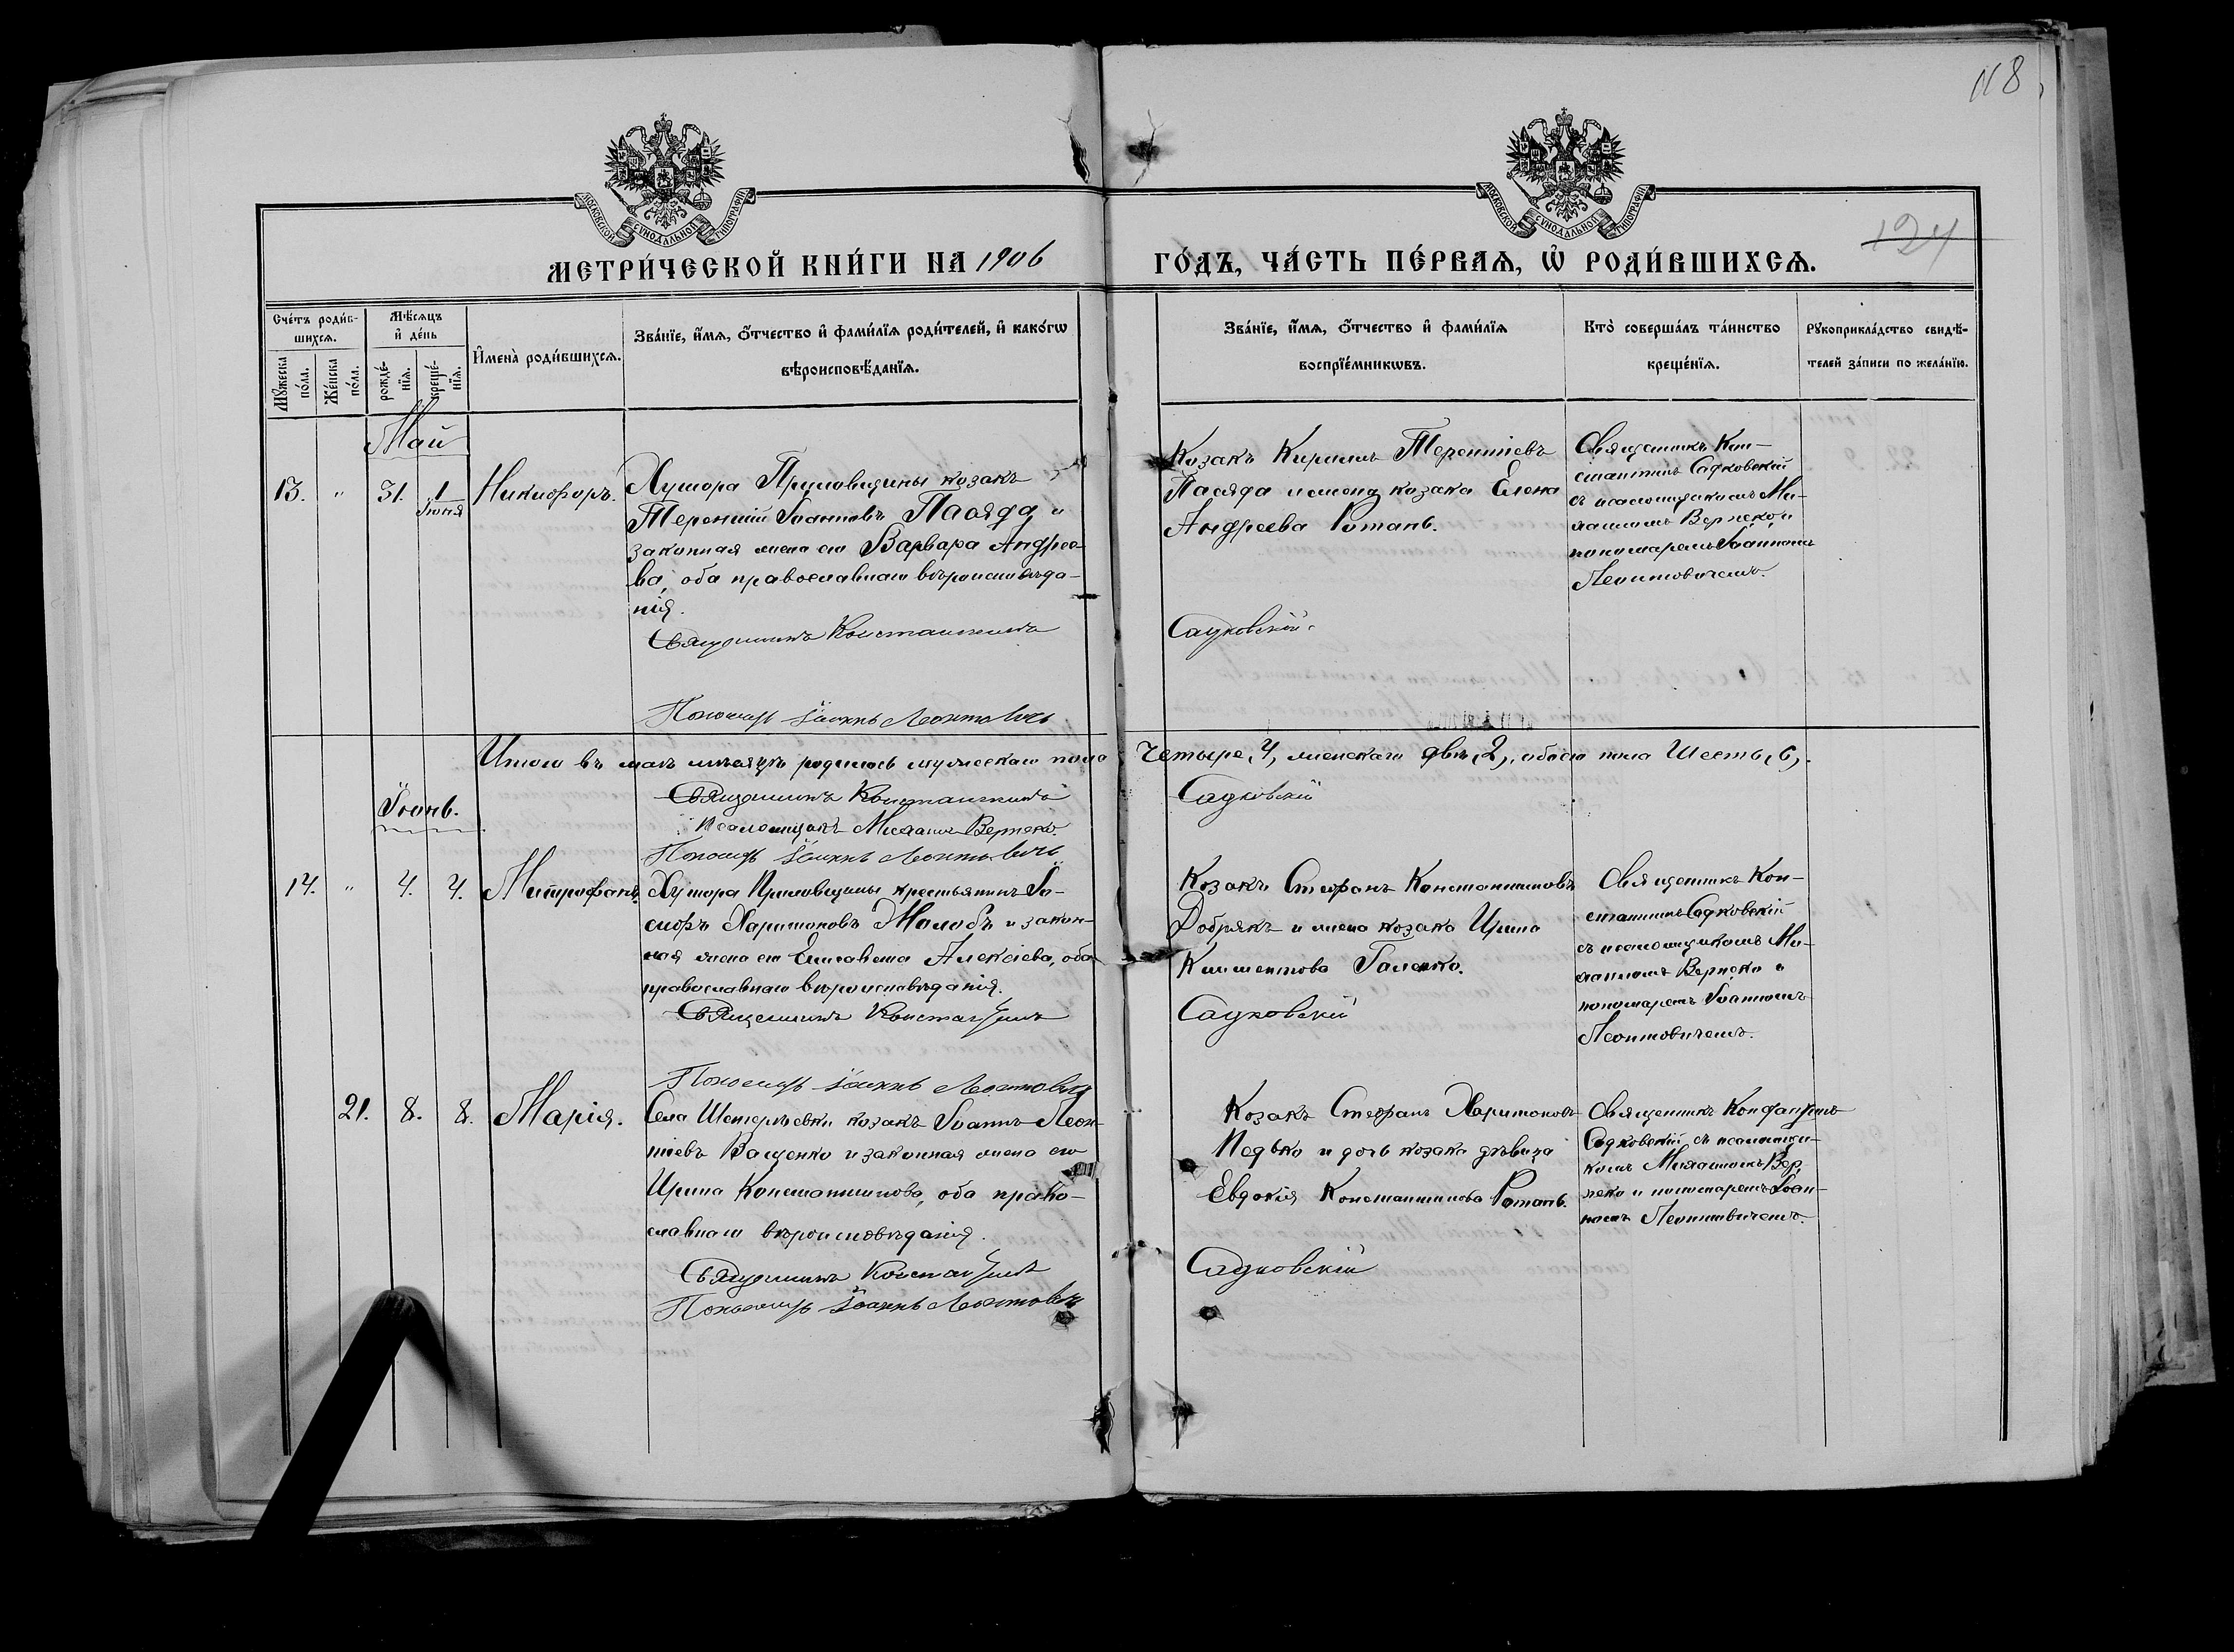 118
124
МОСКОВСКОЙ СѴНОДАЛЬНОЙ ТИПОГРАФІИ
МОСКОВСКОЙ СѴНОДАЛЬНОЙ ТИПОГРАФІИ
МЕТРИ́ЧЕСКОЙ КНИ́ГИ НА 1906
ГО́ДЪ, ЧА́СТЬ ПЕ́РВАѦ, Ѡ҆ РОДИ́ВШИХСѦ.
Сче́тъ роди́в-
шихсѧ.
Мꙋ́жеска по́ла.
Же́нска по́ла.
Мѣ́сѧцъ
и҆ де́нь
рожде́-
нїѧ.
креще́-
нїѧ.
И҆мена̀ роди́вшихсѧ.
Зва́нїе, и҆́мѧ, ѻ҆́тчество и҆ фами́лїѧ роди́телей, и҆ како́гѡ
вѣроисповѣ́данїѧ.
Зва́нїе, и҆́мѧ, ѻ҆́тчество и҆ фами́лїѧ
воспрїе́мникѡвъ.
Кто̀ соверша́лъ та́инство
креще́нїѧ.
Рꙋкоприкла́дство свидѣ́-
телей за́писи по жела́нїю.
Май
13. " 31. 1 Іюня Никифоръ.
Хутора козакъ
Терентій Іоанновъ Пасяда и
законная жена его Варвара Андрее-
ва, оба православнаго вѣроисповѣда-
нія.
Священникъ Константинъ
Пономарь Іоаннъ Леонтовичъ
Козакъ Кириллъ Терентіевъ
Пасяда и жена козака Елена
Андреева Ротань.
Садковскій.
Священникъ Кон-
стантинъ Садковскій
съ псаломщикомъ Ми-
хаиломъ Вернеко и
пономаремъ Іоанномъ
Леонтовичемъ.
Итого въ маѣ мѣсяцѣ родилось мужескаго пола
четыре, 4, женскаго двѣ, 2, обоего пола Шесть, 6,.
Священникъ Константинъ
Садковскій
Псаломщикъ Михаилъ Вернеко.
Пономарь Іоаннъ Леонтовичъ
Іюнь.
14. " 4. 4. Митрофанъ.
Хутора крестьянинъ Іо-
сифъ Харитоновъ и закон-
ная жена его Елисавета Алексіева, оба
православнаго вѣроисповѣданія.
Священникъ Константинъ
Пономарь Іоаннъ Леонтовичъ
Козакъ Стефанъ Константиновъ
Добрякъ и жена козака Ирина
Климентова Галенко.
Садковскій
Священникъ Кон-
стантинъ Садковскій
съ псаломщикомъ Ми-
хаиломъ Вернеко и
пономаремъ Іоанномъ
Леонтовичемъ.
21. 8. 8. Марія.
Села козакъ Іоаннъ Леон-
тіевъ Ващенко и законная жена его
Ирина Константинова, оба право-
славнаго вѣроисповѣданія.
Священникъ Константинъ
Пономарь Іоаннъ Леонтовичъ
Козакъ Стефанъ Харитоновъ
Недько и дочь козака дѣвица
Евдокія Константинова Ротань.
Садковскій
Священникъ Константинъ
Садковскій съ псаломщи-
комъ Михаиломъ Вер-
неко и пономаремъ Іоан-
номъ Леонтовичемъ.